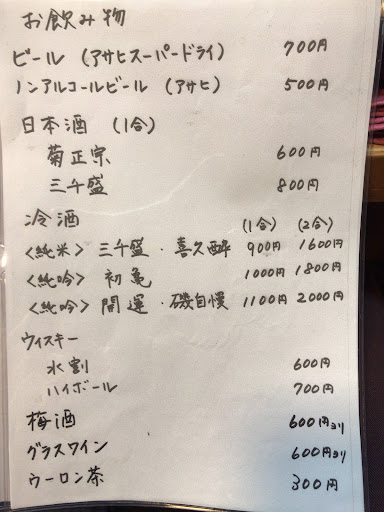 お飲み物
ビール （アサヒスーパードライ） 700円
ノンアルコールビール （アサヒ） 500円
日本酒 （1合）
菊正宗 600円
三千盛 800円
冷酒 （1合） （2合）
〈純米〉 三千盛・喜久酔 900円 1600円
〈純吟〉 初亀 1000円 1800円
〈純吟〉 開運・磯自慢 1100円 2000円
ウィスキー
水割 600円
ハイボール 700円
梅酒 600円ヨリ
グラスワイン 600円ヨリ
ウーロン茶 300円